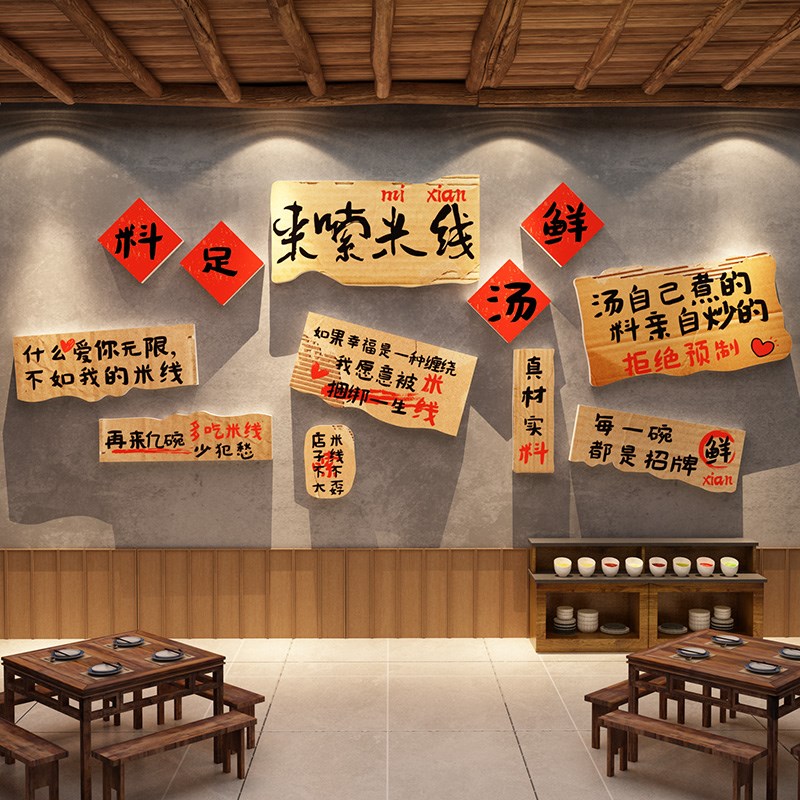 mi xian
来嗦米线
料足
汤鲜
汤自己煮的
料亲自炒的
拒绝预制
什么爱你无限,
不如我的米线
如果幸福是一种缠绕
我愿意被米
捆绑一生线
真材实料
每一碗
都是招牌
鲜
xian
再来亿碗 多吃米线
少犯愁
米线不孬
店子不大
嗦